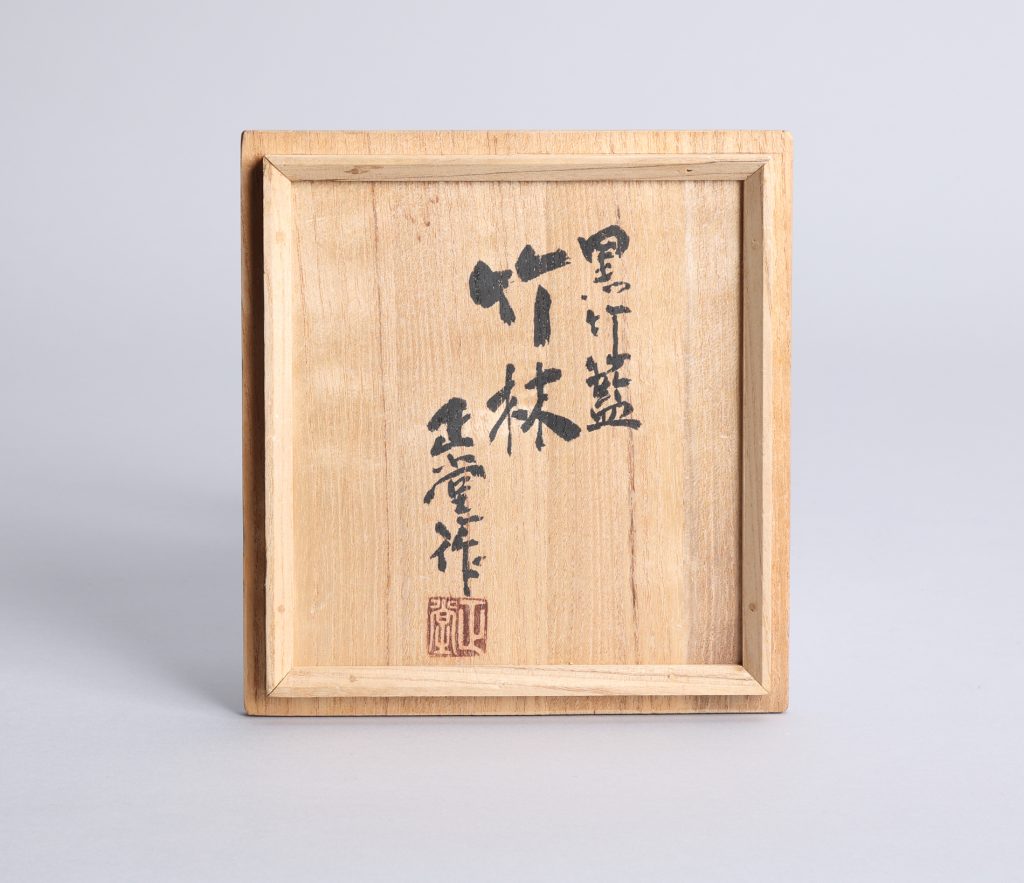 黒竹籃
竹林
正堂作
正堂